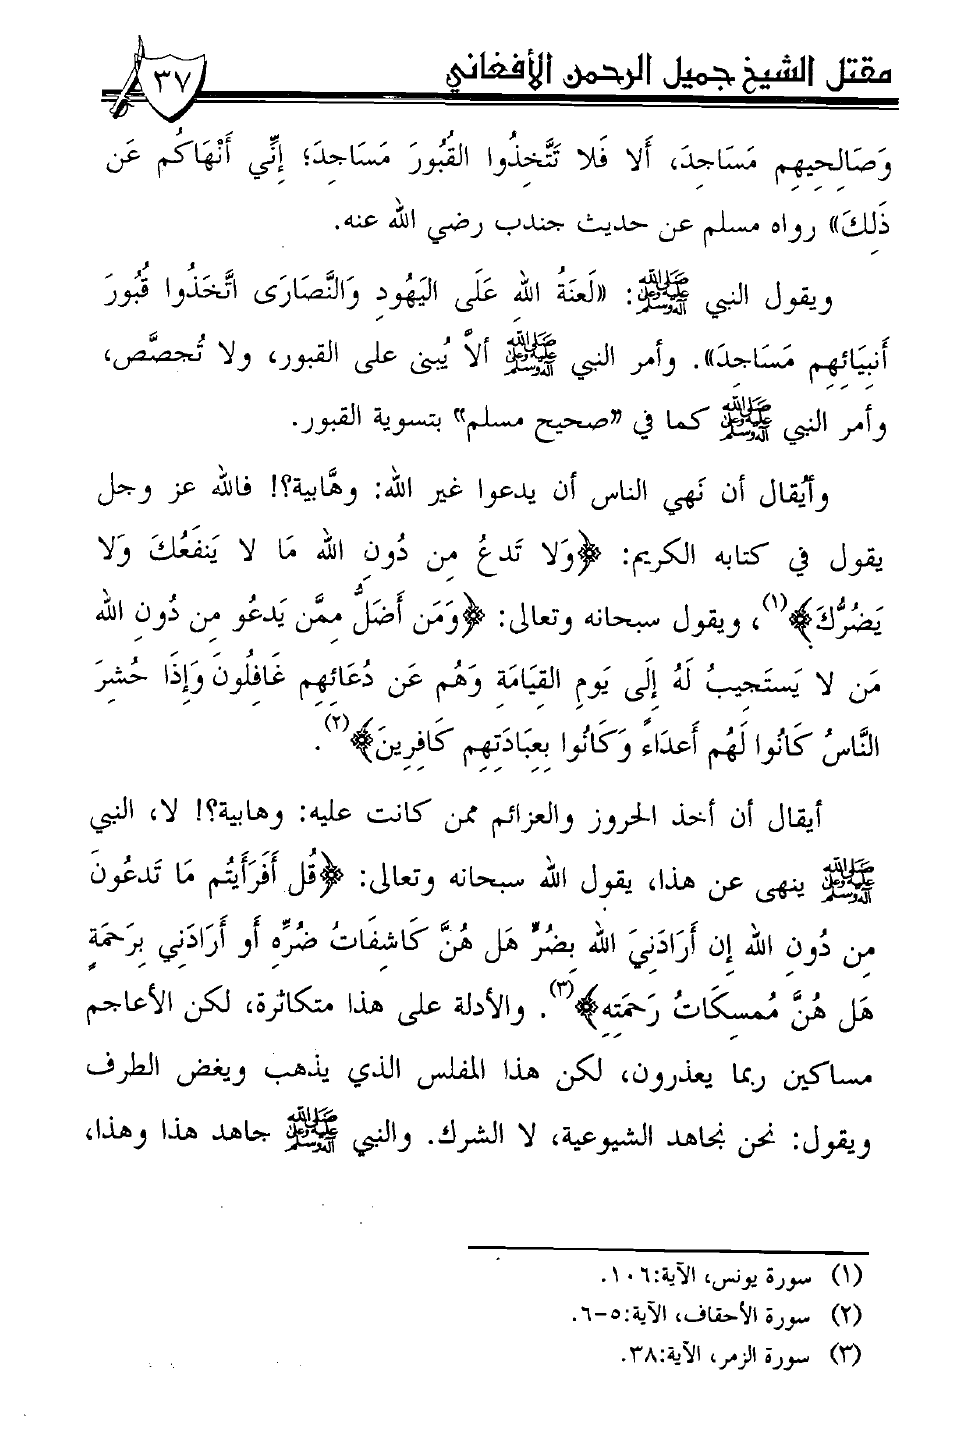 مقتل الشيخ جميل الرحمن الأفغاني
٣٧
وَصَالِحِيهِم مَسَاجِدَ، أَلا فَلا تَتَّخِذُوا القُبُورَ مَسَاجِدَ؛ إِنِّي أَنْهَاكُم عَن
ذَلِكَ» رواه مسلم عن حديث جندب رضي الله عنه.
ويقول النبي ﷺ: «لَعنَةُ اللهِ عَلَى اليَهُودِ وَالنَّصَارَى اتَّخَذُوا قُبُورَ
أَنبِيَائِهِم مَسَاجِدَ». وأمر النبي ﷺ ألاَّ يُبنى على القبور، ولا تُجصَّص،
وأمر النبي ﷺ كما في «صحيح مسلم» بتسوية القبور.
وأيُقال أن نَهي الناس أن يدعوا غير الله: وهَّابية؟! فالله عز وجل
يقول في كتابه الكريم: ﴿وَلا تَدعُ مِن دُونِ اللهِ مَا لا يَنفَعُكَ وَلا
يَضُرُّكَ﴾(١)، ويقول سبحانه وتعالى: ﴿وَمَن أَضَلُّ مِمَّن يَدعُو مِن دُونِ اللهِ
مَن لا يَستَجِيبُ لَهُ إِلَى يَومِ القِيَامَةِ وَهُم عَن دُعَائِهِم غَافِلُونَ وَإِذَا حُشِرَ
النَّاسُ كَانُوا لَهُم أَعدَاءً وَكَانُوا بِعِبَادَتِهِم كَافِرِينَ﴾(٢).
أيقال أن أخذ الحروز والعزائم ممن كانت عليه: وهابية؟! لا، النبي
ﷺ ينهى عن هذا، يقول الله سبحانه وتعالى: ﴿قُل أَفَرَأَيتُم مَا تَدعُونَ
مِن دُونِ اللهِ إِن أَرَادَنِيَ اللهُ بِضُرٍّ هَل هُنَّ كَاشِفَاتُ ضُرِّهِ أَو أَرَادَنِي بِرَحمَةٍ
هَل هُنَّ مُمسِكَاتُ رَحمَتِهِ﴾(٣). والأدلة على هذا متكاثرة، لكن الأعاجم
مساكين ربما يعذرون، لكن هذا المفلس الذي يذهب ويغض الطرف
ويقول: نحن نجاهد الشيوعية، لا الشرك. والنبي ﷺ جاهد هذا وهذا،
(١) سورة يونس، الآية:١٠٦.
(٢) سورة الأحقاف، الآية:٥-٦.
(٣) سورة الزمر، الآية:٣٨.